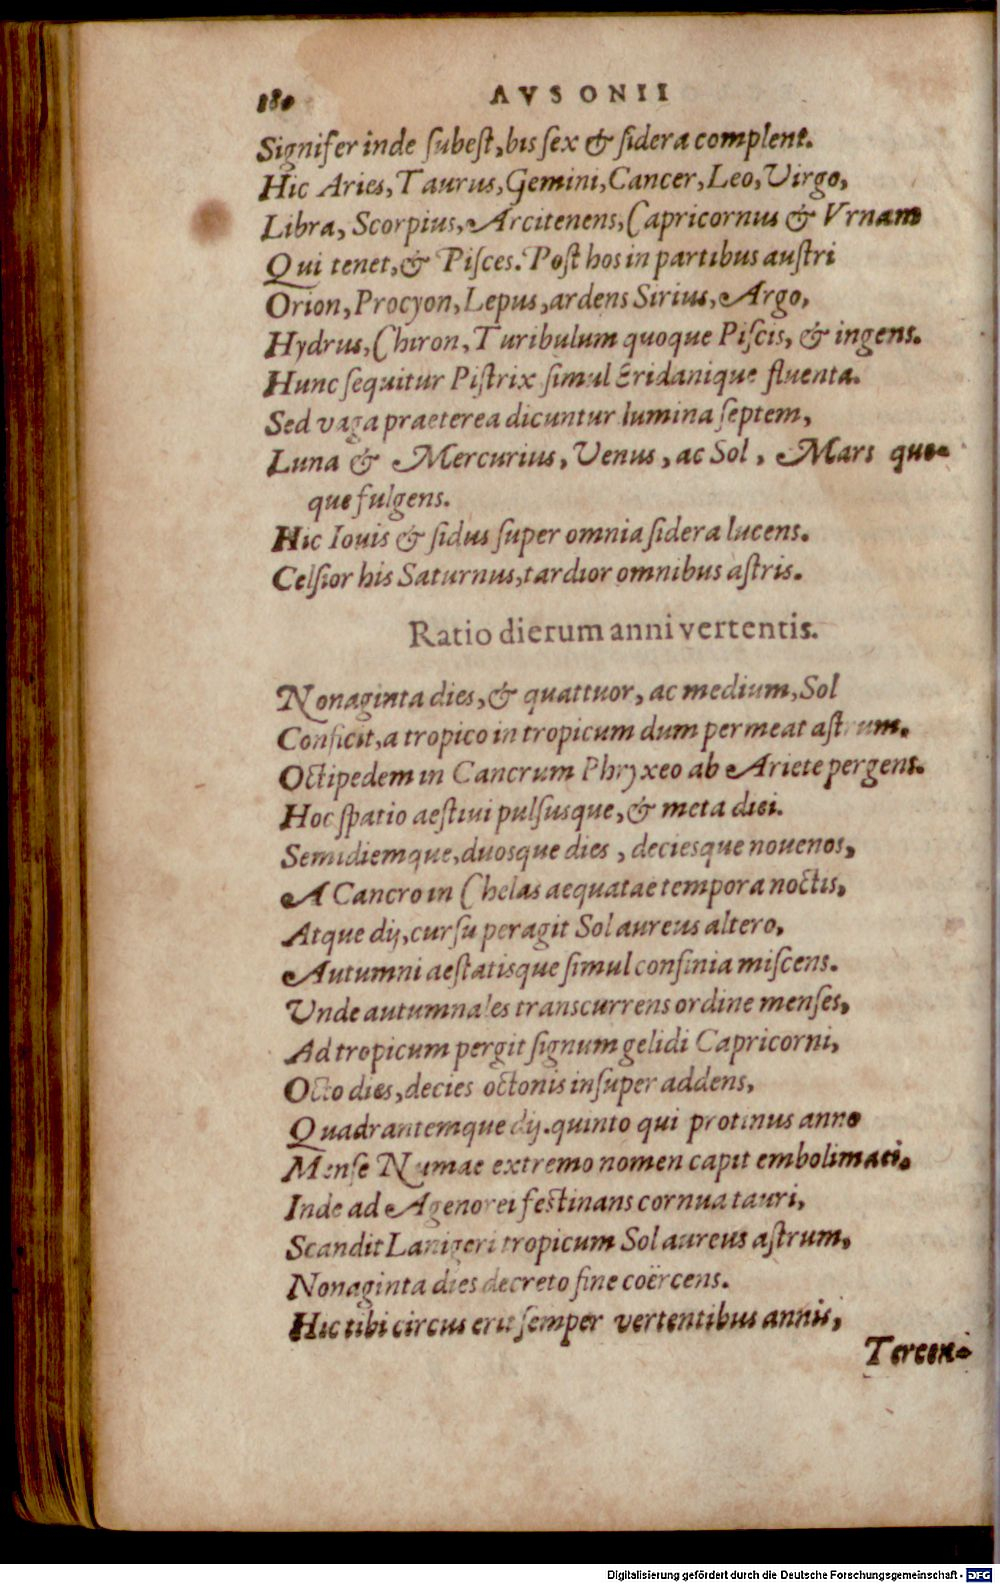 180 AVSONII
Signifer inde ſubeſt, bis ſex & ſidera complent.
Hic Aries, Taurus, Gemini, Cancer, Leo, Virgo,
Libra, Scorpius, Arcitenens, Capricornus & Vrnam
Qui tenet, & Piſces. Poſt hos in partibus auſtri
Orion, Procyon, Lepus, ardens Sirius, Argo,
Hydrus, Chiron, Turibulum quoque Piſcis, & ingens.
Hunc ſequitur Piſtrix ſimul Eridanique fluenta.
Sed vaga praeterea dicuntur lumina ſeptem,
Luna & Mercurius, Venus, ac Sol, Mars quo-
que fulgens.
Hic Iouis & ſidus ſuper omnia ſidera lucens.
Celſior his Saturnus, tardior omnibus aſtris.
Ratio dierum anni vertentis.
Nonaginta dies, & quattuor, ac medium, Sol
Conficit, a tropico in tropicum dum permeat aſtrum.
Octipedem in Cancrum Phryxeo ab Ariete pergens.
Hoc ſpatio aeſtiui pulſusque, & meta diei.
Semidiemque, duosque dies, deciesque nouenos,
A Cancro in Chelas aequatae tempora noctis,
Atque dij, curſu peragit Sol aureus altero,
Autumni aeſtatisque ſimul confinia miſcens.
Unde autumnales transcurrens ordine menſes,
Ad tropicum pergit ſignum gelidi Capricorni,
Octo dies, decies octonis inſuper addens,
Quadrantemque dij. quinto qui protinus anno
Menſe Numae extremo nomen capit embolimaei.
Inde ad Agenorei feſtinans cornua tauri,
Scandit Lanigeri tropicum Sol aureus aſtrum,
Nonaginta dies decreto fine coërcens.
Hic tibi circus erit ſemper vertentibus annis,
Tercen-
Digitalisierung gefördert durch die Deutsche Forschungsgemeinschaft - DFG